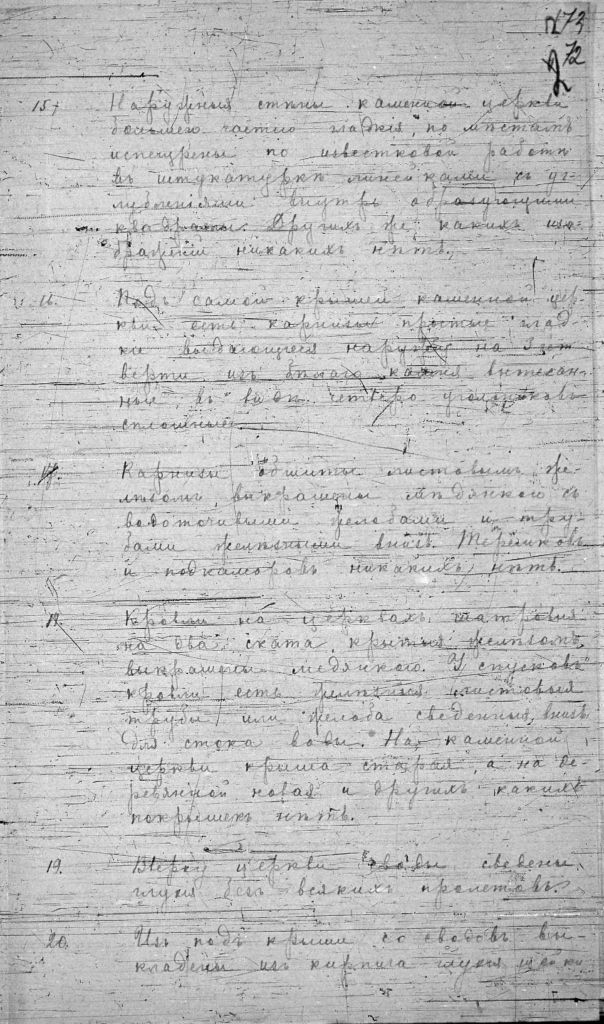 273
272
15. Наружныя стѣны каменной церкви
большею частью гладкія, по мѣстамъ
испещрены по известковой работѣ
въ штукатуркѣ линейками съ уг-
лубленіями внутрь образующими
квадраты. Другихъ же какихъ изо-
браженій никакихъ нѣтъ.
16. Подъ самой крышей каменной цер-
кви есть карнизы простые глад-
кіе выдающіеся наружу на 3 чет-
верти изъ бѣлаго камня вытесан-
ные въ видѣ четыреугольниковъ
сплошные.
17. Карнизы обшиты листовымъ же-
лѣзомъ, выкрашены мѣдянкой съ
водоточивыми желобами и тру-
бами желѣзными внизъ. Теремковъ
и подкаморовъ никакихъ нѣтъ.
18. Кровли на церквахъ шатровыя
на два ската, крытыя желѣзомъ,
выкрашены медянкою. У спусковъ
кровли есть желѣзныя листовыя
трубы или желоба сведенныя внизъ
для стока воды. На каменной
церкви крыша старая, а на де-
ревянной новая и другихъ какихъ
покрышекъ нѣтъ.
19. Вверху церкви своды сведены
глухія безъ всякихъ пролетовъ.
20. Изъ подъ крыши со сводовъ вы-
кладены изъ кирпича глухія шейки